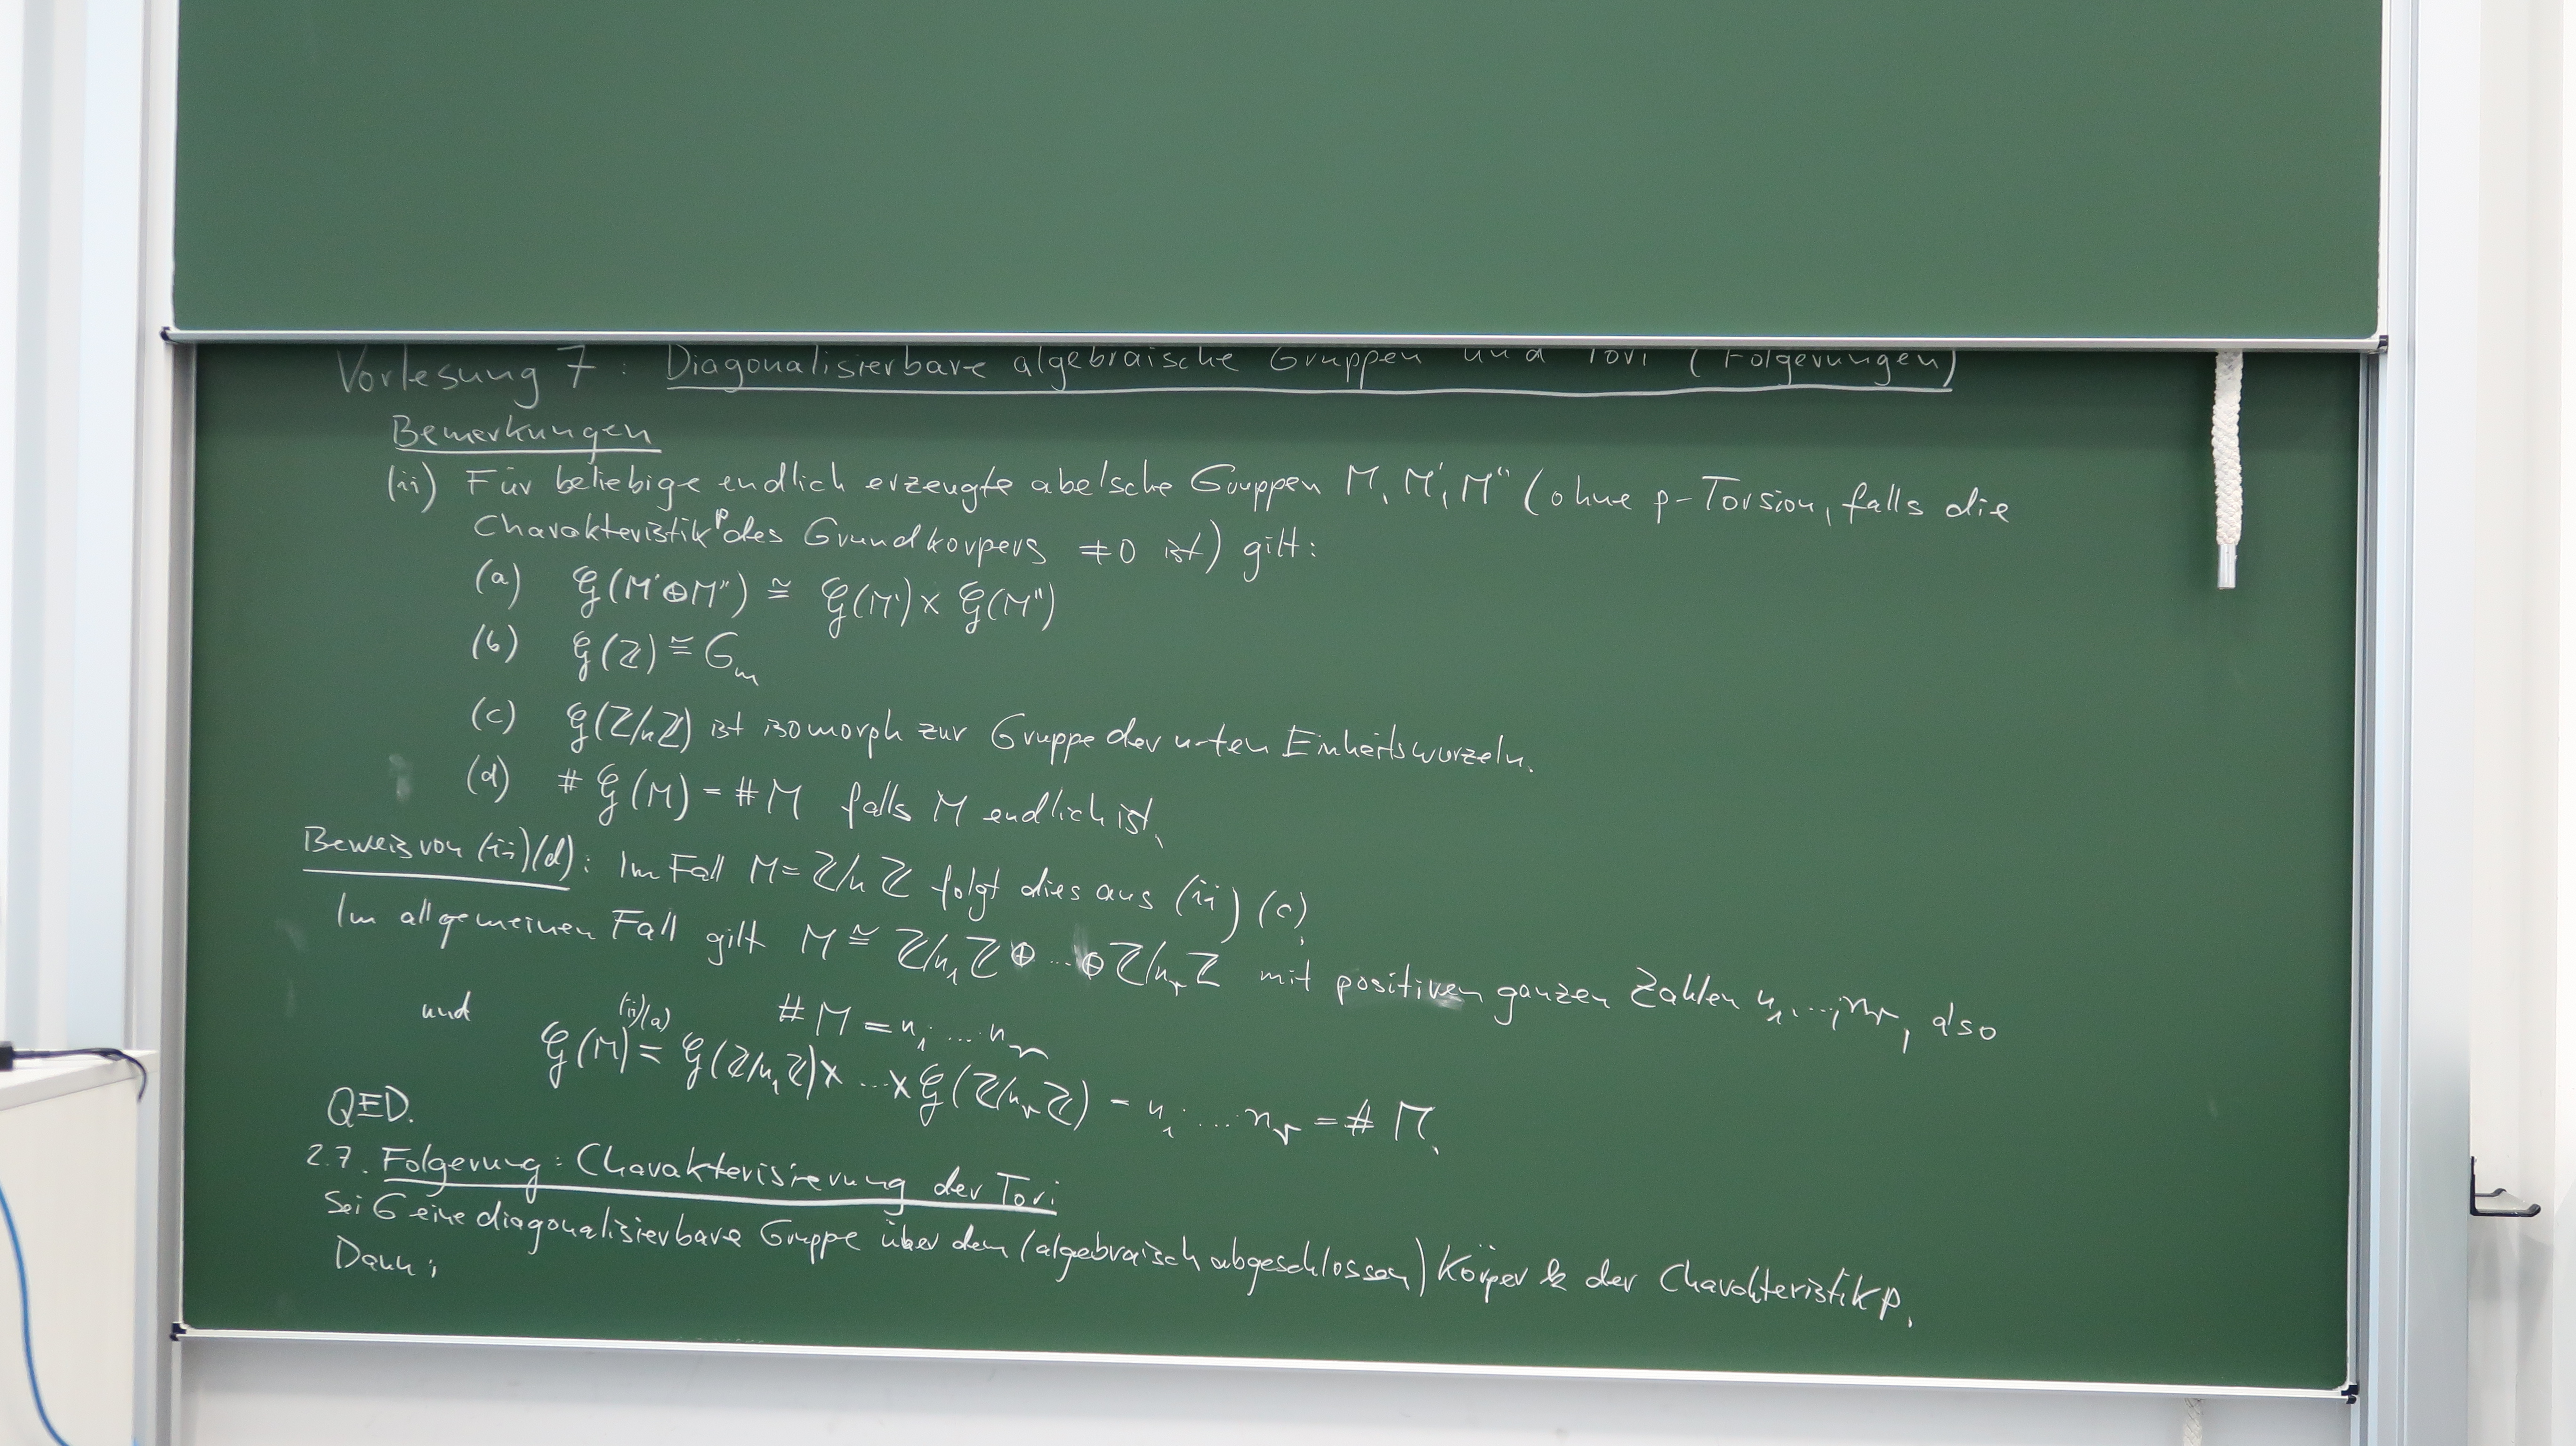 Vorlesung 7 : Diagonalisierbare algebraische Gruppen und Tori (Folgerungen)
Bemerkungen
(ii) Für beliebige endlich erzeugte abelsche Gruppen M, M', M'' (ohne p-Torsion, falls die
Charakteristik p des Grundkörpers ≠0 ist) gilt:
(a) 𝒢(M'⊕M'') ≅ 𝒢(M') x 𝒢(M'')
(b) 𝒢(ℤ) ≅ G_m
(c) 𝒢(ℤ/nℤ) ist isomorph zur Gruppe der n-ten Einheitswurzeln.
(d) # 𝒢(M) = #M falls M endlich ist.
Beweis von (ii)(d): Im Fall M = ℤ/nℤ folgt dies aus (ii)(c).
Im allgemeinen Fall gilt M ≅ ℤ/n₁ℤ ⊕ ... ⊕ ℤ/n_rℤ mit positiven ganzen Zahlen n₁, ..., n_r, also
#M = n₁· ... n_r
und
(ii)(a)
𝒢(M) = 𝒢(ℤ/n₁ℤ) x ... x 𝒢(ℤ/n_rℤ) = n₁· ... n_r = # M.
QED.
2.7. Folgerung: Charakterisierung der Tori
Sei G eine diagonalisierbare Gruppe über dem (algebraisch abgeschlossen) Körper k der Charakteristik p.
Dann: